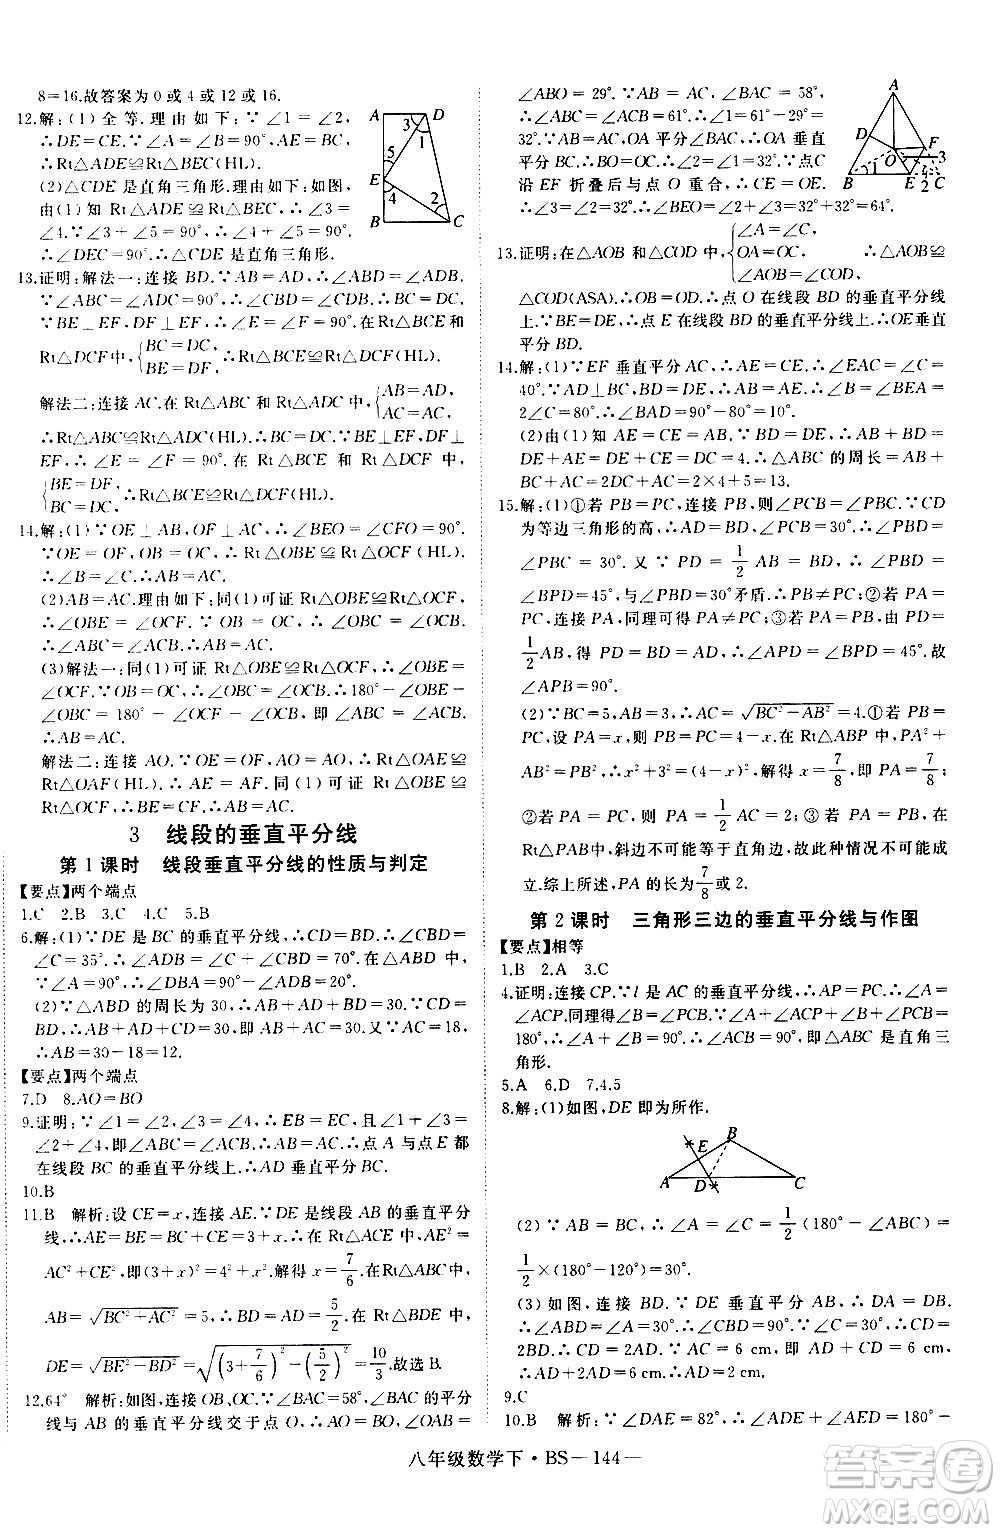 8=16.故答案为0或4或12或16.
12.解:(1)全等.理由如下:∵∠1=∠2,
∴DE=CE.∵∠A=∠B=90°,AE=BC,
∴Rt△ADE≌Rt△BEC(HL).
(2)△CDE是直角三角形.理由如下:如图,
由(1)知 Rt△ADE≌Rt△BEC,∴∠3=
∠4.∵∠3+∠5=90°,∴∠4+∠5=90°,
∴∠DEC=90°.∴△CDE是直角三角形.
13.证明:解法一:连接BD.∵AB=AD,∴∠ABD=∠ADB.
∵∠ABC=∠ADC=90°,∴∠CBD=∠CDB.∴BC=DC.
∵BE⊥EF,DF⊥EF,∴∠E=∠F=90°.在Rt△BCE和
Rt△DCF中,{BC=DC, BE=DF,∴Rt△BCE≌Rt△DCF(HL).
解法二:连接AC.在Rt△ABC和Rt△ADC中,{AB=AD, AC=AC,
∴Rt△ABC≌Rt△ADC(HL).∴BC=DC.∵BE⊥EF,DF⊥
EF,∴∠E=∠F=90°.在Rt△BCE和Rt△DCF中,
{BE=DF, BC=DC,∴Rt△BCE≌Rt△DCF(HL).
14.解:(1)∵OE⊥AB,OF⊥AC,∴∠BEO=∠CFO=90°.
∵OE=OF,OB=OC,∴Rt△OBE≌Rt△OCF(HL).
∴∠B=∠C.∴AB=AC.
(2)AB=AC.理由如下:同(1)可证Rt△OBE≌Rt△OCF,
∴∠OBE=∠OCF.∵OB=OC,∴∠OBC=∠OCB.
∴∠ABC=∠ACB.∴AB=AC.
(3)解法一:同(1)可证Rt△OBE≌Rt△OCF,∴∠OBE=
∠OCF.∵OB=OC,∴∠OBC=∠OCB.∴180°-∠OBE-
∠OBC=180°-∠OCF-∠OCB,即∠ABC=∠ACB.
∴AB=AC.
解法二:连接AO.∵OE=OF,OA=OA,∴Rt△OAE≌
Rt△OAF(HL).∴AE=AF.同(1)可证Rt△OBE≌
Rt△OCF,∴BE=CF.∴AE-BE=AF-CF,即AB=AC.
3 线段的垂直平分线
第1课时 线段垂直平分线的性质与判定
【要点】两个端点
1.C 2.B 3.C 4.C 5.B
6.解:(1)∵DE是BC的垂直平分线,∴CD=BD.∴∠CBD=
∠C=35°.∵∠A=90°,∴∠ABD=20°.
(2)∵△ABD的周长为30,∴AB+AD+BD=30.∵CD=
BD,∴AB+AD+CD=AB+AC=30.又∵AC=18,
∴AB=30-18=12.
【要点】两个端点
7.D 8.AO=BO
9.证明:∵∠1=∠2,∠3=∠4,∴EB=EC,∠1+∠3=
∠2+∠4,即∠ABC=∠ACB.∴AB=AC.∴点A与点E都
在线段BC的垂直平分线上.∴AD垂直平分BC.
10.B
11.B 解析:设CE=x,连接AE.∵DE是线段AB的垂直平分
线,∴AE=BE=BC+CE=3+x.∵在Rt△ACE中,AE²=
AC²+CE²,即(3+x)²=4²+x².解得x=7/6.在Rt△ABC中,
AB=√(BC²+AC²)=5,∴BD=AD=5/2.在Rt△BDE中,
DE=√(BE²-BD²)=√((3+7/6)²-(5/2)²)=10/3.故选B.
12.64° 解析:如图,连接OB、OC.∵∠BAC=58°,∠BAC的平分
线与AB的垂直平分线交于点O,∴AO=BO,∠OAB=
∠ABO=29°.∵AB=AC,∠BAC=58°,
∴∠ABC=∠ACB=61°.∴∠1=61°-29°=
32°.∵AB=AC,OA平分∠BAC,∴OA垂直
平分BC.∴BO=CO.∴∠1=∠2=32°.∵∠C
沿EF折叠后与点O重合,∴CE=OE.
∴∠3=∠2=32°.∴∠BEO=∠2+∠3=32°+32°=64°.
13.证明:在△AOB和△COD中,{∠A=∠C, OA=OC, ∠AOB=∠COD, ∴△AOB≌
△COD(ASA).∴OB=OD.∴点O在线段BD的垂直平分线
上.∵BE=DE,∴点E在线段BD的垂直平分线上.∴OE垂直
平分BD.
14.解:(1)∵EF垂直平分AC,∴AE=CE.∴∠CAE=∠C=
40°.∵AD⊥BC,BD=DE,∴AB=AE.∴∠B=∠BEA=
2∠C=80°.∴∠BAD=90°-80°=10°.
(2)由(1)知AE=EC=AB=4.∵BD=DE=2,
∴DC=DE+EC=AB+DE=2+4.∴△ABC的周长为AB+
BC+AC=2AB+2DE+AC=2×4+5=13.
15.解:(1)①若PB=PC,连接PB,则∠PCB=∠PBC.∵CD
为等边三角形的高,∴AD=BD,∠PCB=30°.∴∠PBD=
∠PBC=30°.∴PD=1/2PB.又∵PD=1/2AB=BD,∴
∠BPD=45°,与∠PBD=30°矛盾.∴PB≠PC;②若PA=
PC,连接PA,同理可得PA≠PC;③若PA=PB,由PD=
1/2AB,得PD=BD=AD,∴∠APD=∠BPD=45°.故
∠APB=90°.
(2)∵BC=5,AB=3,∴AC=√(BC²-AB²)=4.①若PB=
PC,设PA=x,则PB=PC=4-x,∴在Rt△PAB中,PA²+
AB²=PB²,即x²+3²=(4-x)².∴x=7/8,即PA=7/8;
②若PA=PC,则PA=1/2AC=2;③若PA=PB,由图知,在
Rt△PAB中,斜边不可能等于直角边,故此种情况不可能成
立.综上所述,PA的长为7/8或2.
第2课时 三角形三边的垂直平分线与作图
【要点】相等
1.B 2.A 3.C
4.证明:连接CP.∵l是AC的垂直平分线,∴AP=PC.∴∠A=
∠ACP.同理得∠B=∠PCB.∵∠A+∠B+∠ACP+∠PCB=
180°,∴∠A+∠B=90°.∴∠ACB=90°.∴△ABC是直角三
角形.
5.A 6.D 7.4.5
8.解:(1)如图,DE即为所作.
(2)∵AB=BC,∴∠A=∠C=1/2(180°-∠ABC)=
1/2×(180°-120°)=30°.
(3)如图,连接BD.∵DE垂直平分AB,∴DA=DB.
∴∠ABD=∠A=30°.∴∠CBD=90°.在Rt△BCD中,CD=
2BD.∴CD=2AD.∵AC=6 cm,即AD+CD=6 cm,
∴AD+2AD=6 cm.∴AD=2 cm.
9.C
10.B 解析:∵∠DAE=82°,∴∠ADE+∠AED=180°-
八年级数学下·BS—144—
答案圈
MXQE.COM